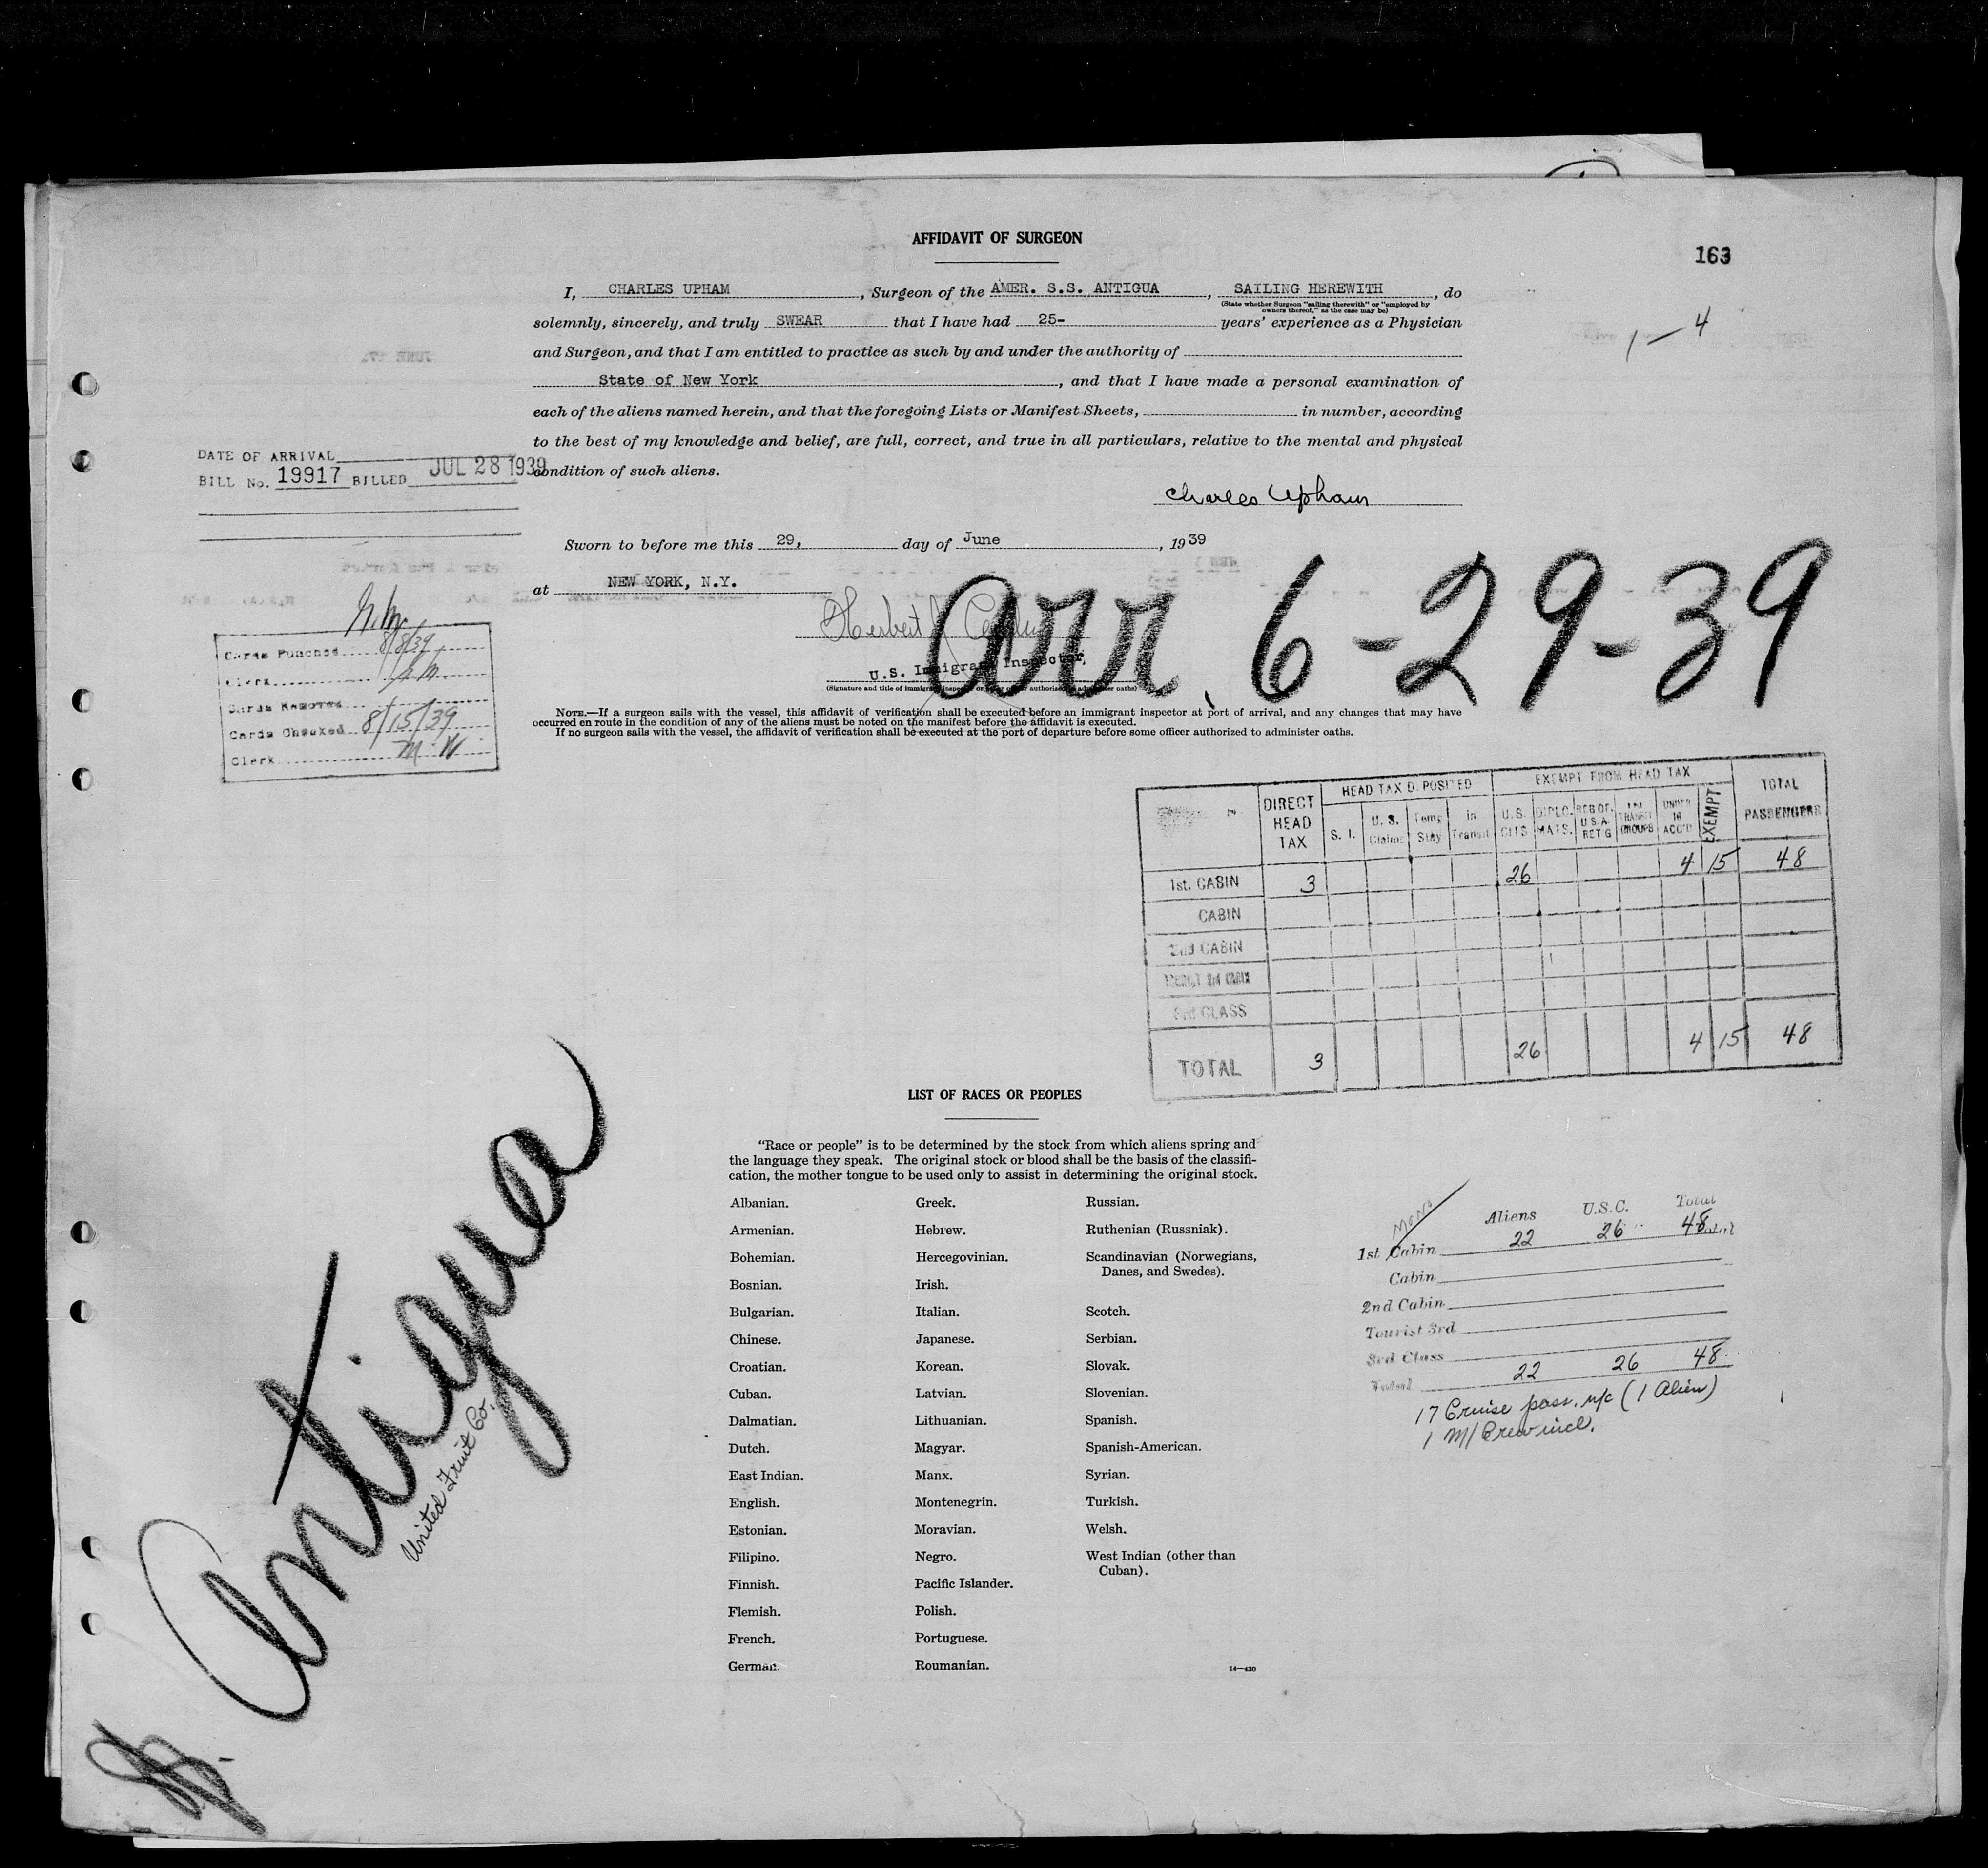 AFFIDAVIT OF SURGEON
163
1 — 4
I, CHARLES UPHAM, Surgeon of the AMER. S.S. ANTIGUA, SAILING HEREWITH, do
(State whether Surgeon "sailing therewith" or "employed by
owners thereof," as the case may be)
solemnly, sincerely, and truly SWEAR that I have had 25- years' experience as a Physician
and Surgeon, and that I am entitled to practice as such by and under the authority of
State of New York, and that I have made a personal examination of
each of the aliens named herein, and that the foregoing Lists or Manifest Sheets, in number, according
to the best of my knowledge and belief, are full, correct, and true in all particulars, relative to the mental and physical
condition of such aliens.
DATE OF ARRIVAL
BILL No. 19917 BILLED JUL 28 1939
Charles Upham
Sworn to before me this 29, day of June, 1939
at NEW YORK, N.Y.
Herbert
U.S. Immigrant Inspector,
(Signature and title of immigrant inspector or other officer authorized to administer oaths)
Arr. 6-29-39
Cards Punched 8/8/39
Clerk
Cards Removed
Cards Checked 8/15/39
Clerk M. W.
NOTE.—If a surgeon sails with the vessel, this affidavit of verification shall be executed before an immigrant inspector at port of arrival, and any changes that may have
occurred en route in the condition of any of the aliens must be noted on the manifest before the affidavit is executed.
If no surgeon sails with the vessel, the affidavit of verification shall be executed at the port of departure before some officer authorized to administer oaths.
DIRECT HEAD TAX HEAD TAX DEPOSITED EXEMPT FROM HEAD TAX TOTAL PASSENGERS
S. I. U. S. Claims Temp Stay in Transit U.S. CITS DIPLO. MATS. RES OF. U.S.A. RET'G IN TRANSIT GROUPS UNDER 16 ACC'D EXEMPT
1st. CABIN 3 26 4 15 48
CABIN
2nd CABIN
TOURIST 3rd CABIN
3rd CLASS
TOTAL 3 26 4 15 48
LIST OF RACES OR PEOPLES
"Race or people" is to be determined by the stock from which aliens spring and
the language they speak. The original stock or blood shall be the basis of the classifi-
cation, the mother tongue to be used only to assist in determining the original stock.
Albanian. Greek. Russian.
Armenian. Hebrew. Ruthenian (Russniak).
Bohemian. Hercegovinian. Scandinavian (Norwegians,
Danes, and Swedes).
Bosnian. Irish.
Bulgarian. Italian. Scotch.
Chinese. Japanese. Serbian.
Croatian. Korean. Slovak.
Cuban. Latvian. Slovenian.
Dalmatian. Lithuanian. Spanish.
Dutch. Magyar. Spanish-American.
East Indian. Manx. Syrian.
English. Montenegrin. Turkish.
Estonian. Moravian. Welsh.
Filipino. Negro. West Indian (other than
Cuban).
Finnish. Pacific Islander.
Flemish. Polish.
French. Portuguese.
German. Roumanian.
14—430
Mono
Aliens U.S.C. Total
1st Cabin 22 26 48
Cabin
2nd Cabin
Tourist 3rd
3rd Class
Total 22 26 48
17 Cruise pass. n/c (1 Alien)
1 M/Crew incl.
Antigua
United Fruit Co.